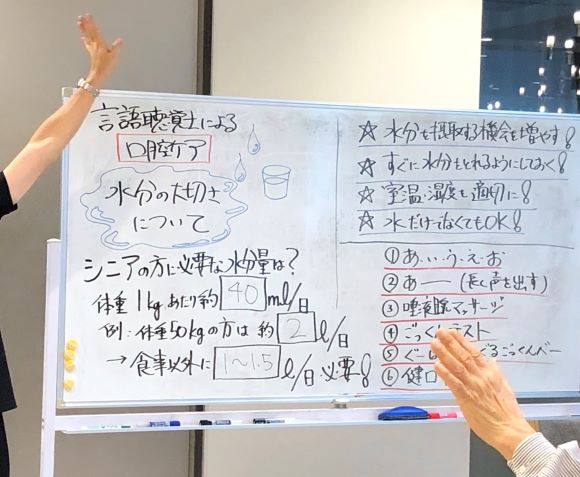 言語聴覚士による
口腔ケア
水分の大切さ
について
シニアの方に必要な水分量は?
体重1kgあたり約 40 ml/日
例:体重50kgの方は 約 2 l/日
→食事以外に 1〜1.5 l/日 必要!
☆ 水分を摂取する機会を増やす!
☆ すぐに水分をとれるようにしておく!
☆ 室温・湿度を適切に!
☆ 水だけでなくてもOK!
① あ・い・う・え・お
② あ―― (長く声を出す)
③ 唾液腺マッサージ
④ ごっくんテスト
⑤ ぐー ごっくんべー
⑥ 健口